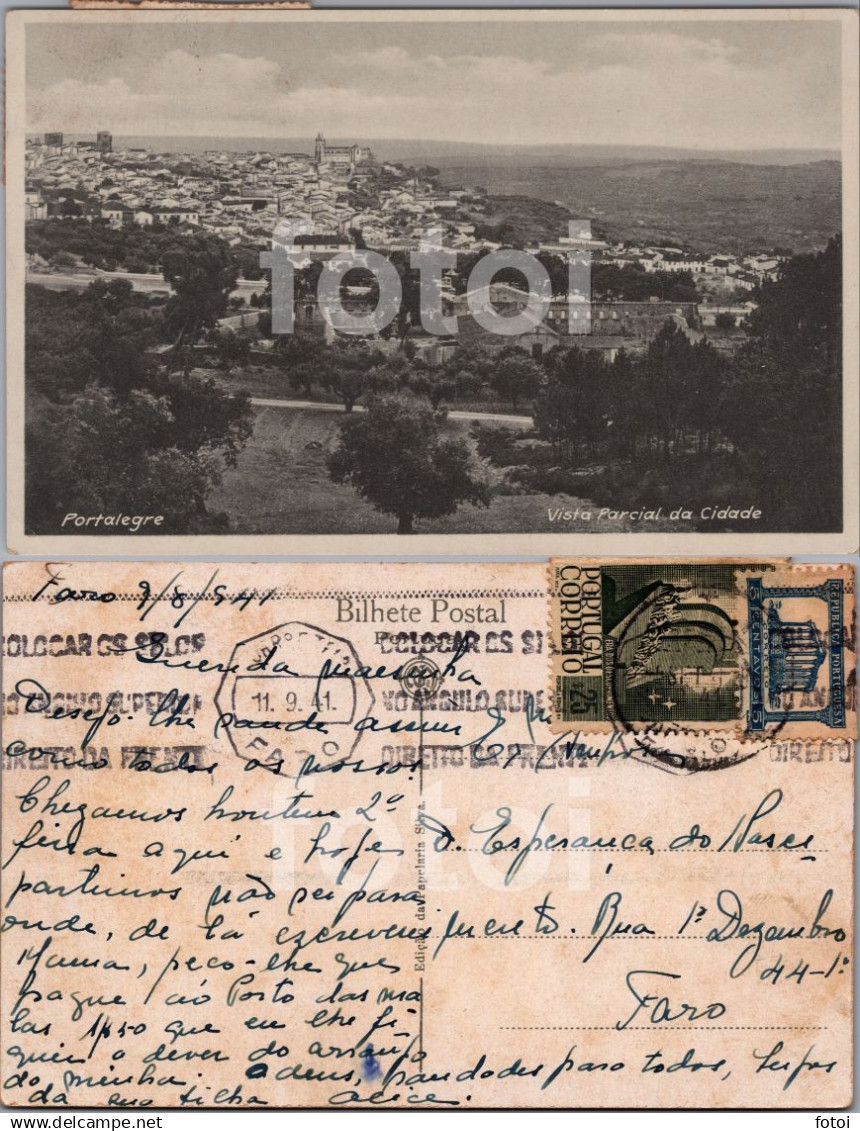 Portalegre
Vista Parcial da Cidade
fotoi
Faro 9/8/941
Bilhete Postal
COLOCAR OS SELOS
NO ANGULO SUPERIOR
DIREITO DA FRENTE
Querida mãesinha
Desejo-lhe saude assim
como todos os nossos
Chegamos hontem 2ª
feira aqui e hoje
partimos não sei para
onde, de lá escreverei
Mama, peço-lhe que
pague ao Porto das ma
las 1$50 que eu lhe fi
quei a dever do arranjo
da minha. Adeus, saudades para todos,
da sua filha Alice.
11.9.41.
FARO
Edição da Papelaria Silva.
PORTUGAL
CORREIO
25
REPUBLICA PORTUGUESA
CORREIO
5 CENTAVOS 5
D. Esperança do
Rua 1º Dezembro
44-1º
Faro
fotoi
delcampe.net
fotoi